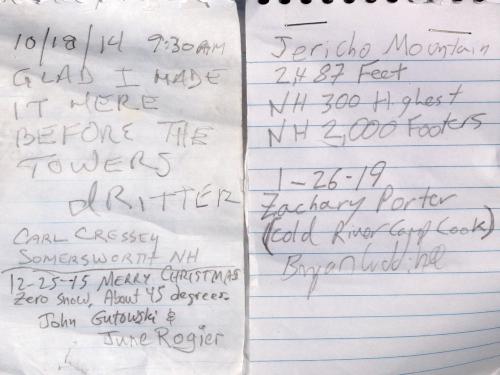 10/18/14 9:30AM
GLAD I MADE
IT HERE
BEFORE THE
TOWERS
dRITTER
CARL CRESSEY
SOMERSWORTH NH
12-25-15 MERRY CHRISTMAS
Zero snow, About 45 degrees.
John Gutowski &
June Rogier
Jericho Mountain
2487 Feet
NH 300 Highest
NH 2,000 Footers
1-26-19
Zachary Porter
(Cold River Camp Cook)
Bryan